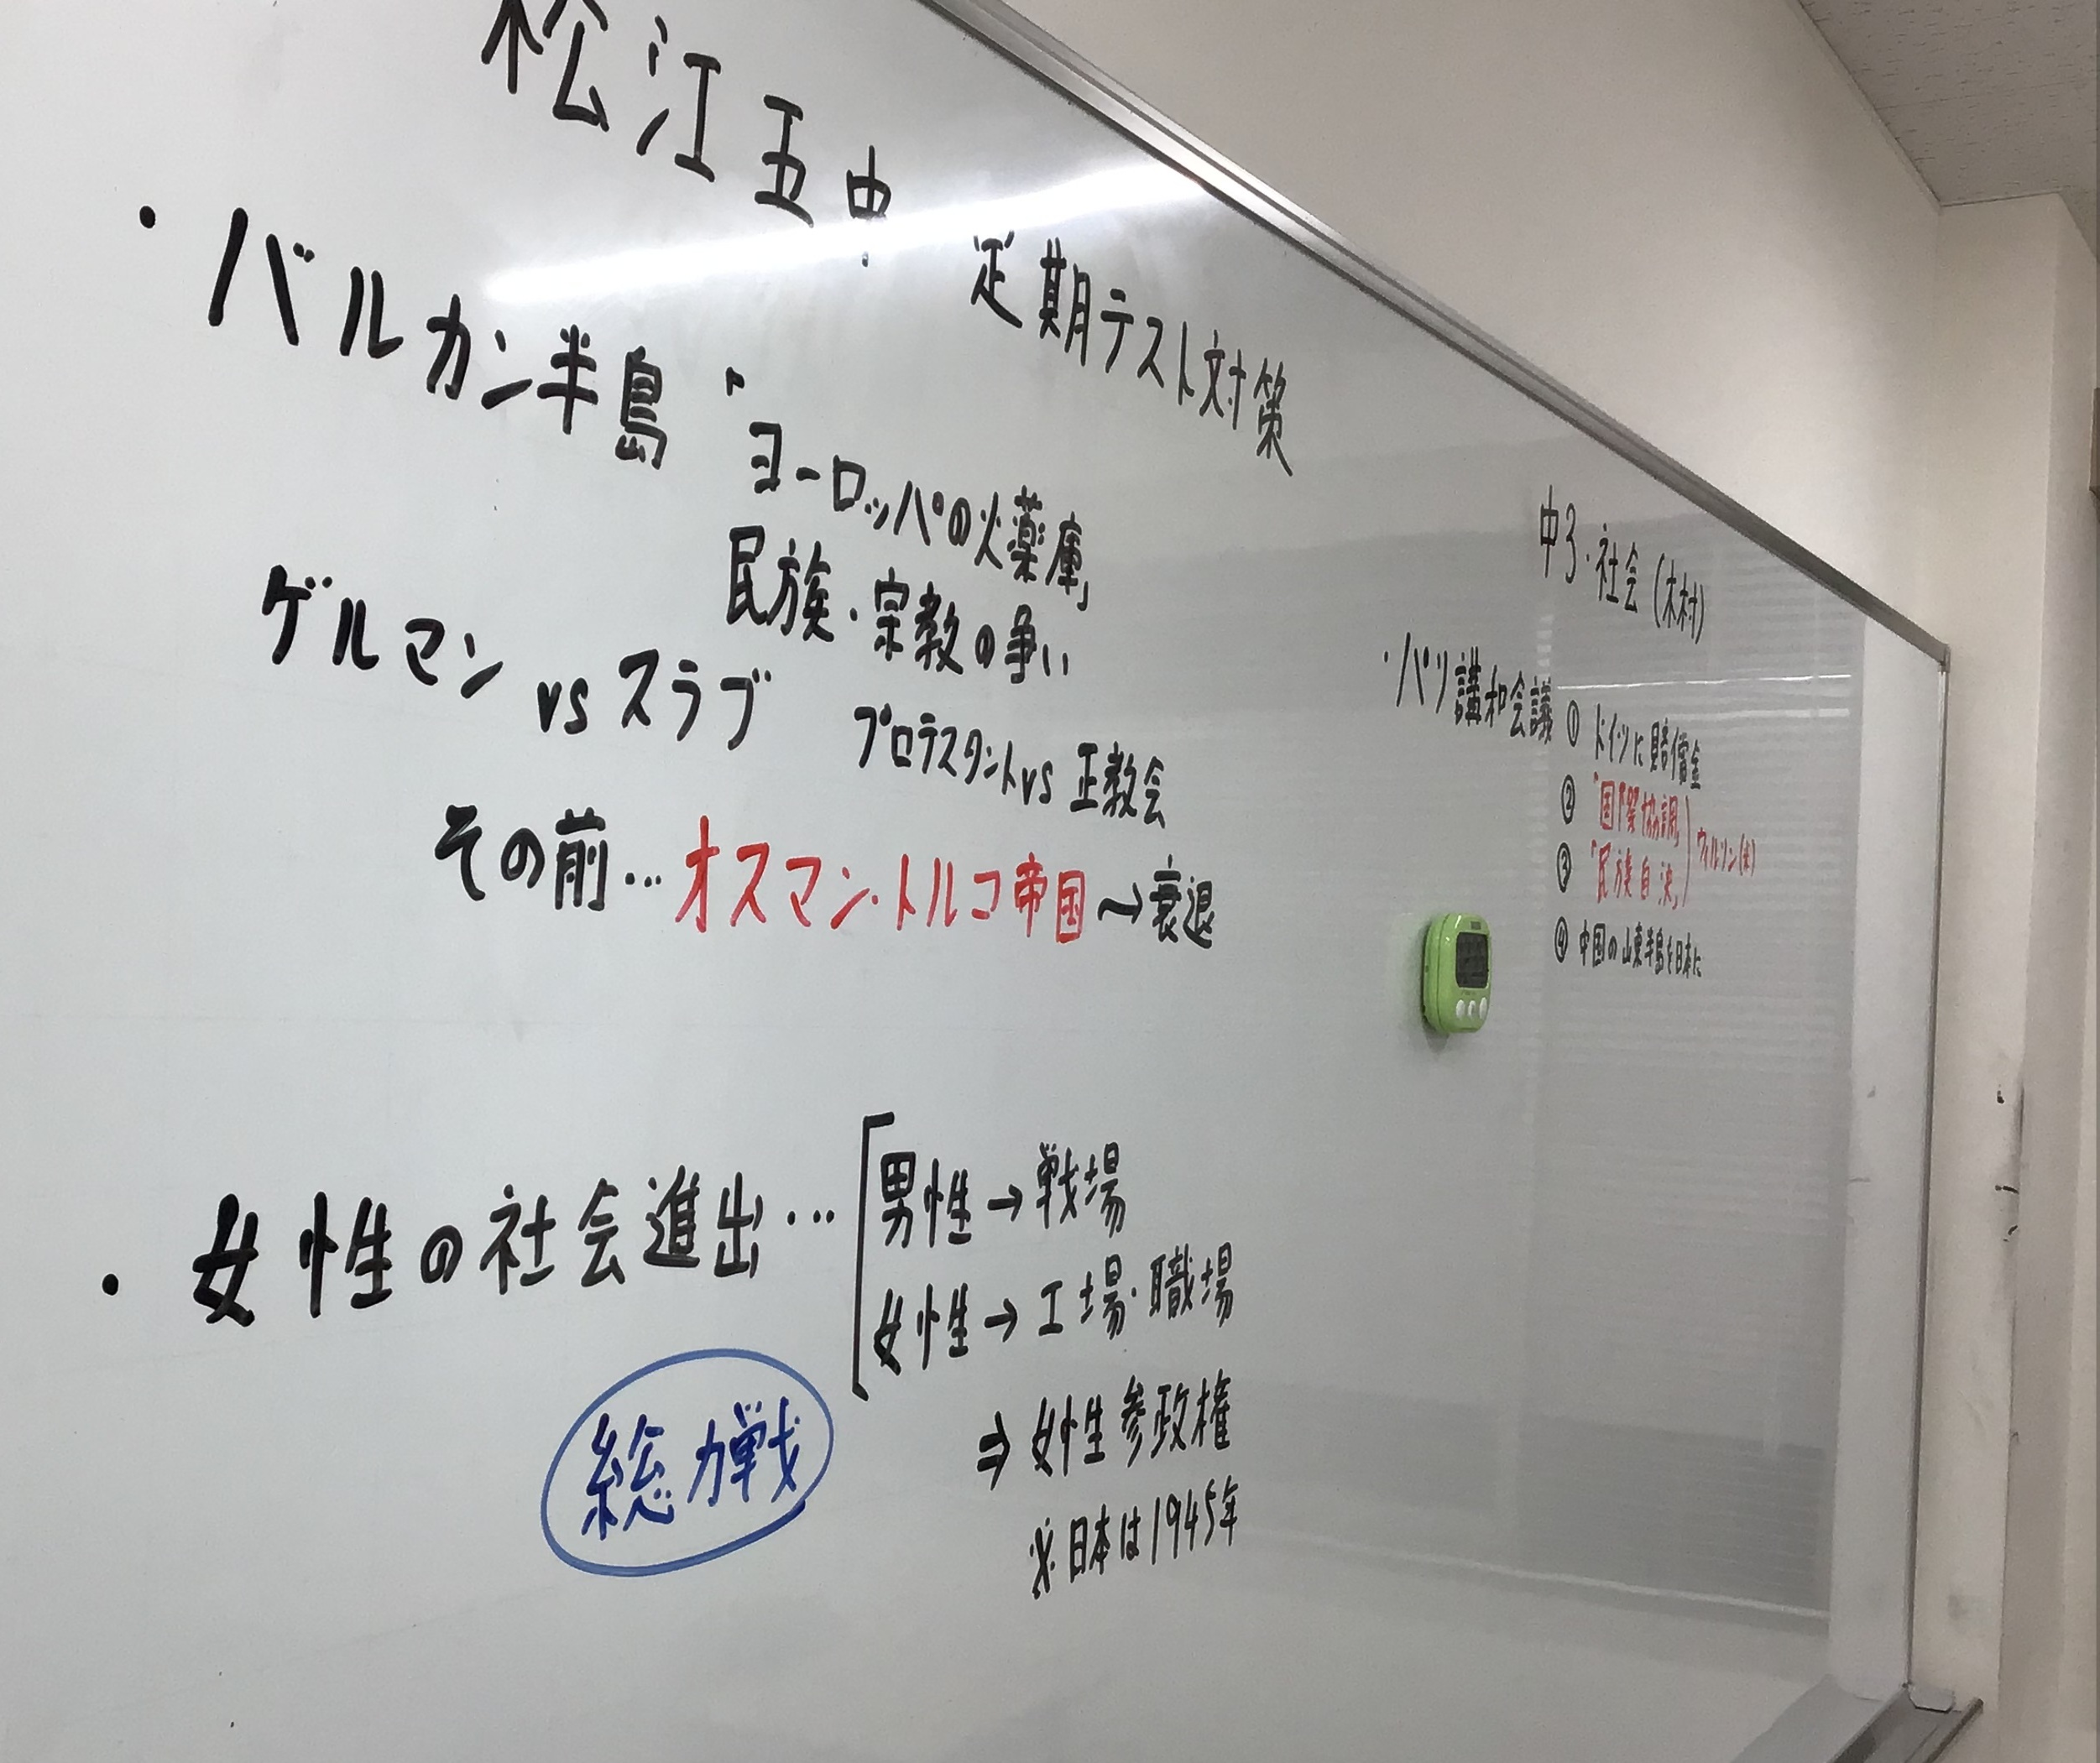 松江五中 定期テスト対策 中3・社会(木村)
・バルカン半島「ヨーロッパの火薬庫」
民族・宗教の争い
ゲルマン vs スラブ プロテスタント vs 正教会
その前…オスマン・トルコ帝国→衰退
・女性の社会進出…
男性→戦場
女性→工場・職場
⇒女性参政権
※日本は1945年
総力戦
・パリ講和会議
① ドイツに賠償金
② 「国際協調」
③ 「民族自決」
ウィルソン(米)
④ 中国の山東半島を日本に